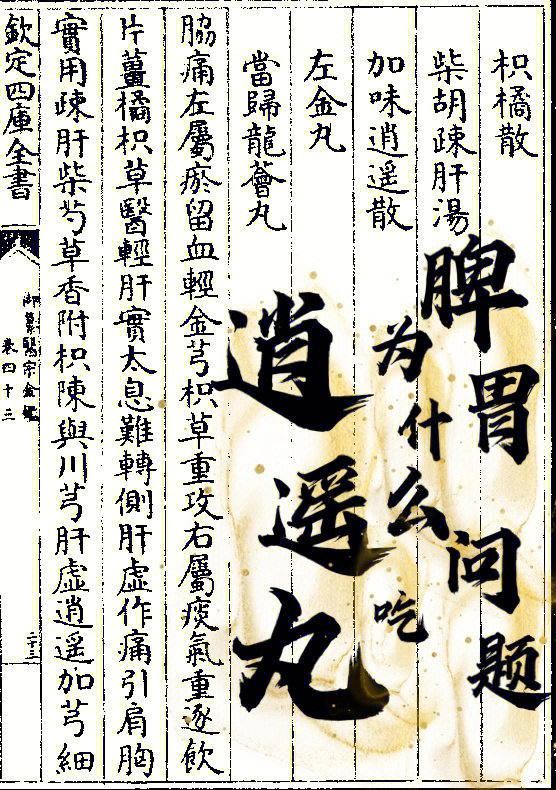 枳橘散
柴胡疎肝湯
加味逍遥散
左金丸
當歸龍薈丸
脇痛左屬瘀留血輕金芎枳草重攻右屬痰氣重逐飲
片薑橘枳草醫輕肝實太息難轉側肝虛作痛引肩胸
實用疎肝柴芍草香附枳陳與川芎肝虛逍遥加芎細
欽定四庫全書
御纂醫宗金鑑
卷四十三
二十三
脾胃问题
为什么吃
逍遥丸